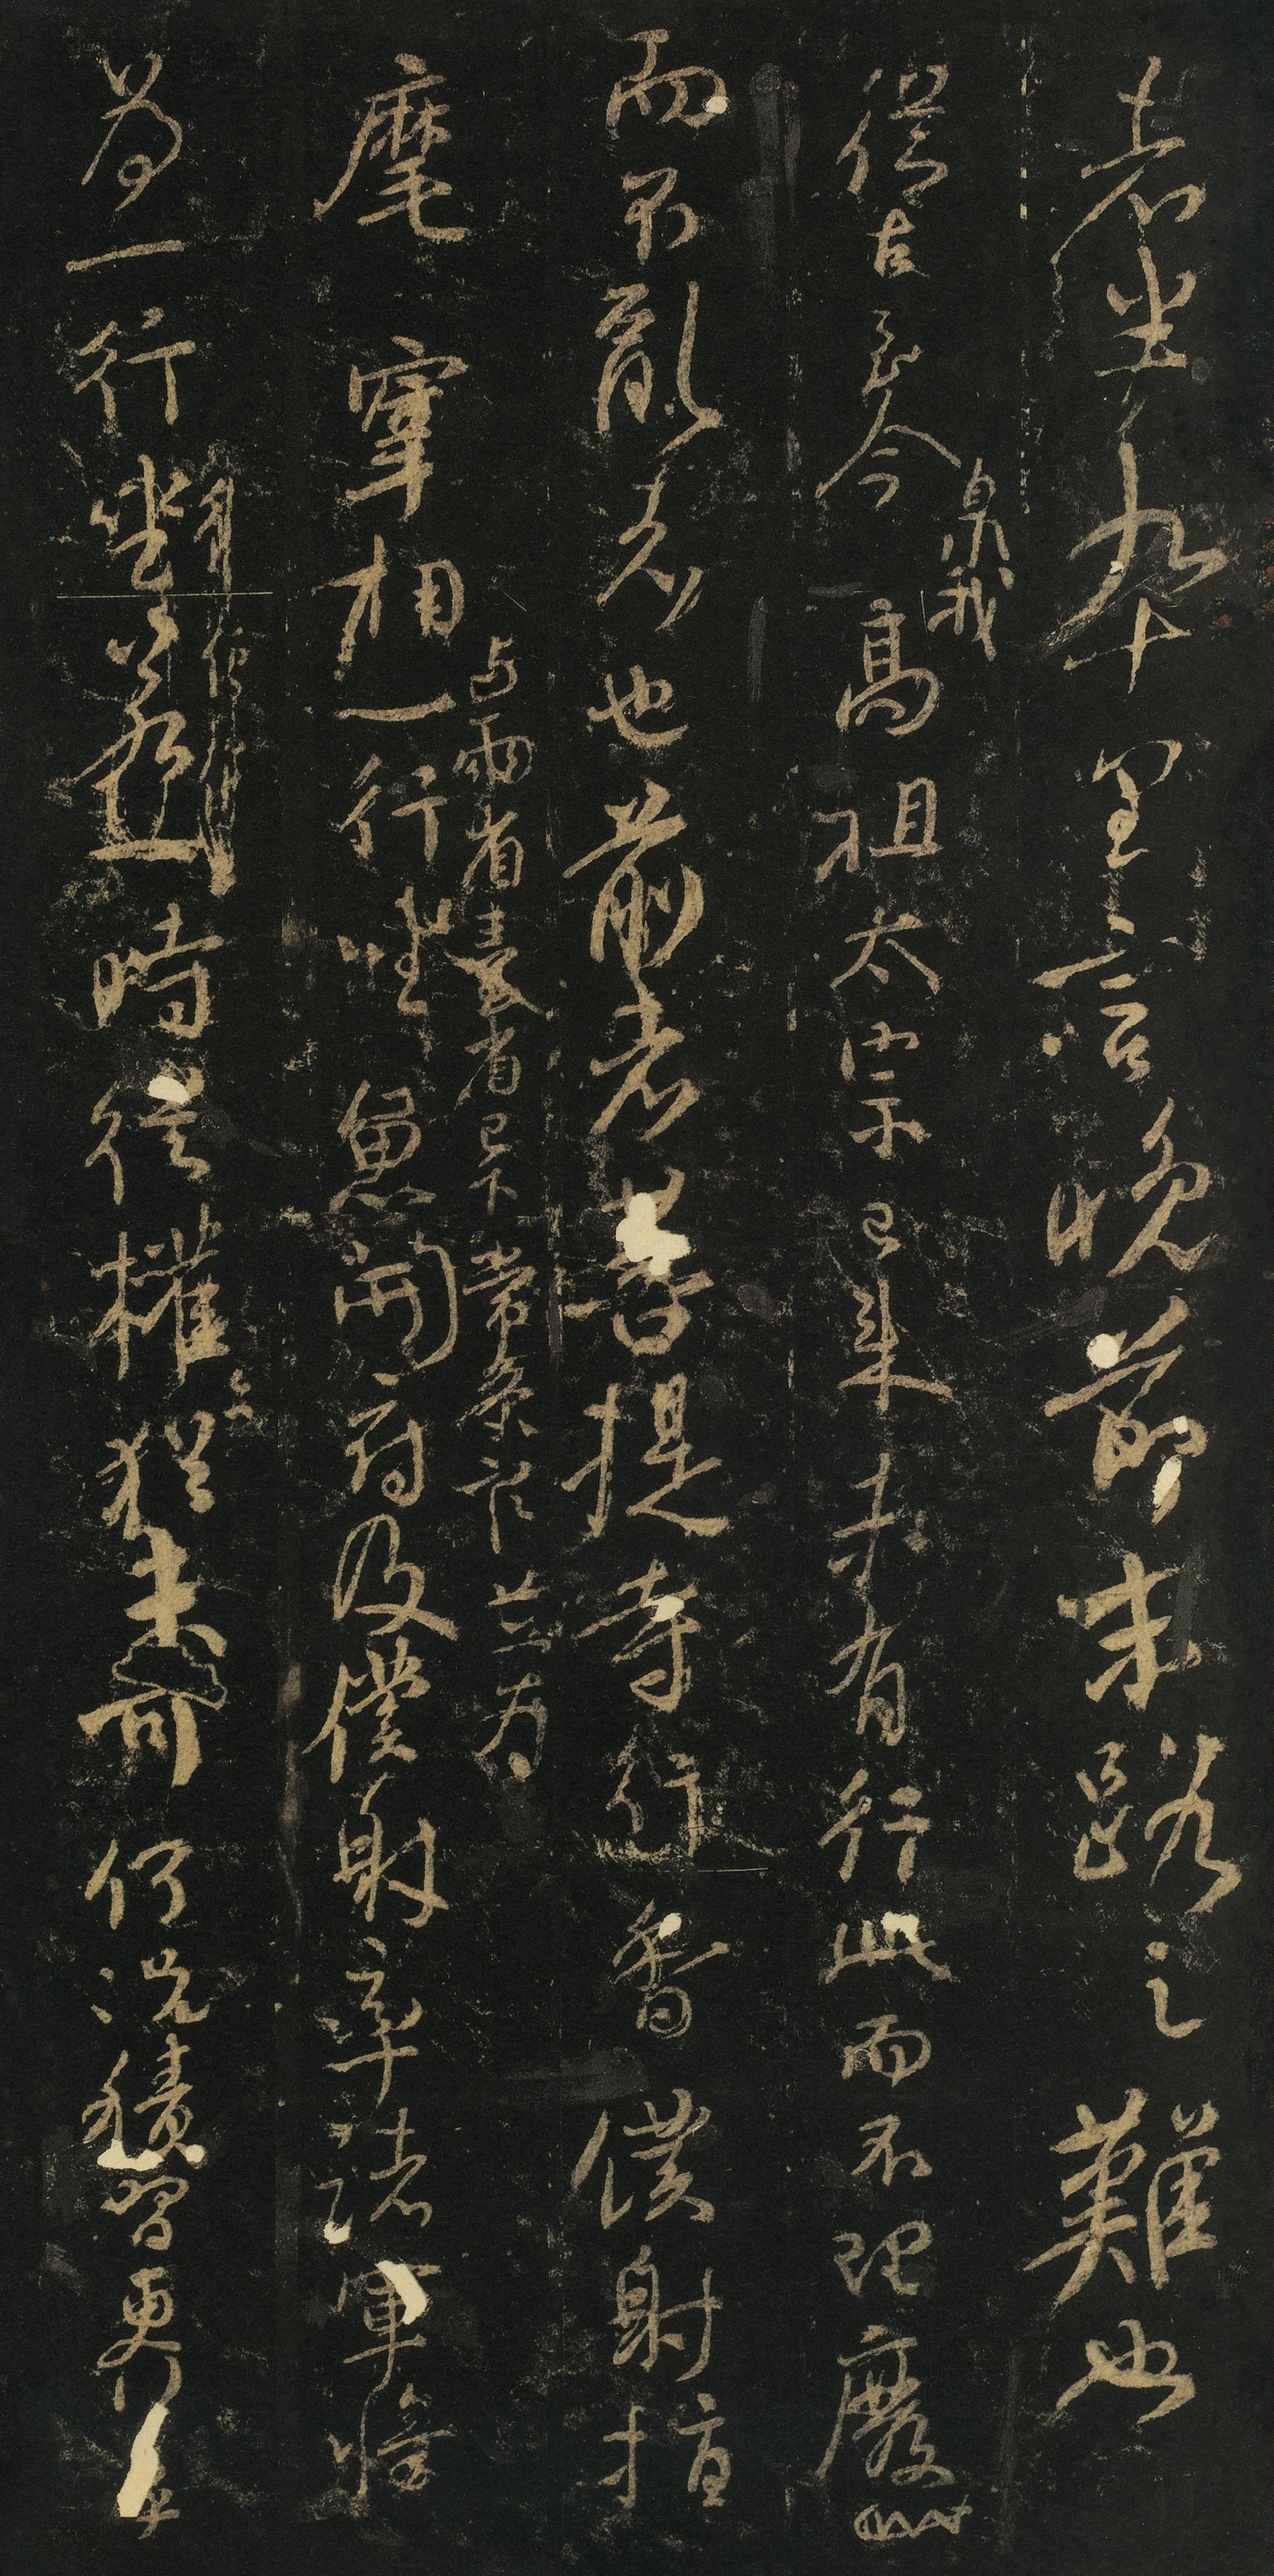 者半九十里言晚節末路之難也
從古至今臮我高祖太宗已來未有行此而不理廢
而不亂者也前者菩提寺行香僕射指
麾宰相与兩省臺省已下常參官並為一行坐魚開府及僕射率諸軍將
為一行坐若一時從權亦猶未可何況積習更行